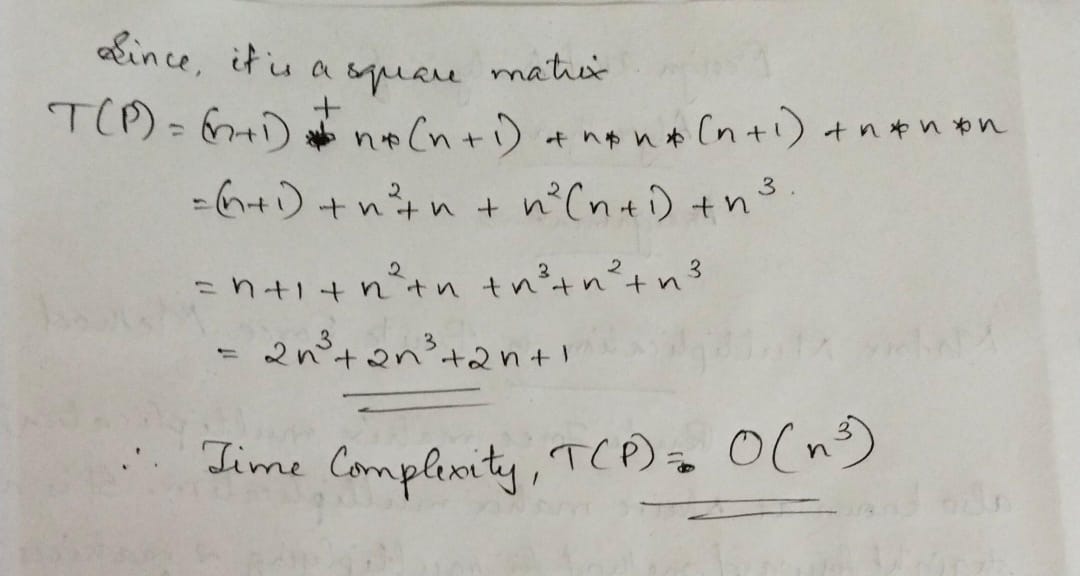 Since, it is a square matrix
T(P) = (n+1) + n*(n+1) + n*n*(n+1) + n*n*n
=(n+1) + n²+n + n²(n+1) + n³.
= n+1 + n²+n + n³+n²+n³
= 2n³+2n³+2n+1
∴ Time Complexity, T(P) = O(n³)